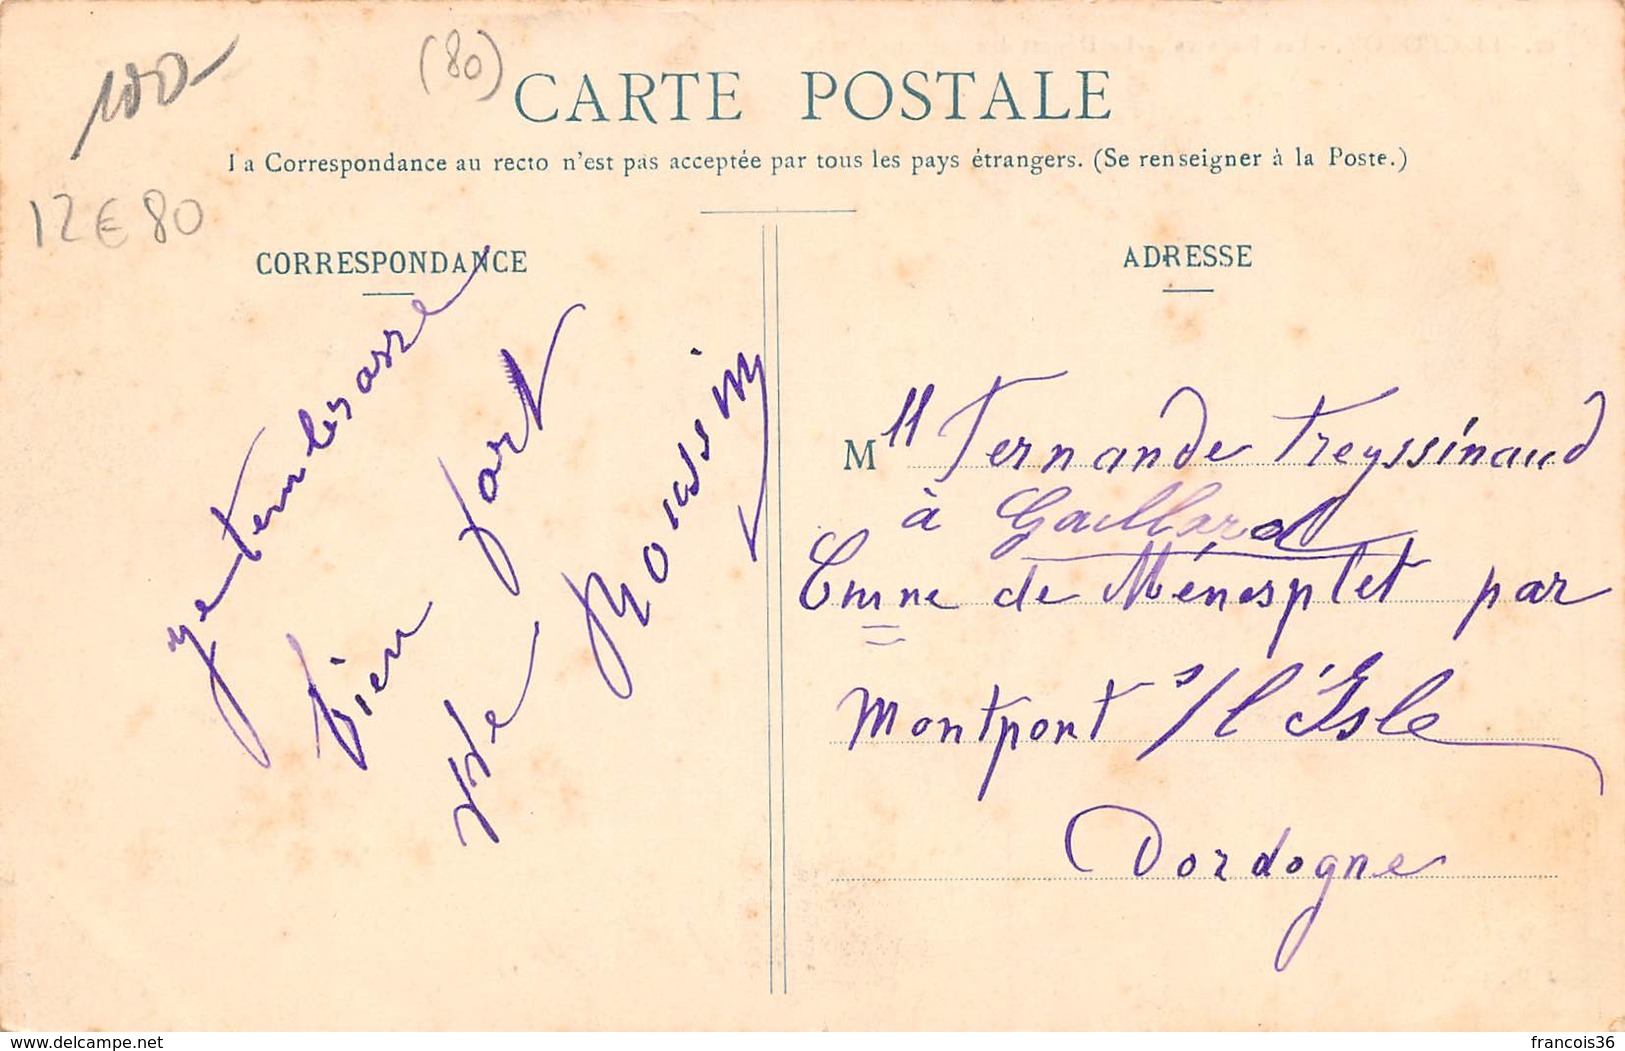 100-
(80)
CARTE POSTALE
La Correspondance au recto n'est pas acceptée par tous les pays étrangers. (Se renseigner à la Poste.)
12€80
CORRESPONDANCE
Je tembrasse
bien fort
Roussin
ADRESSE
Mll Fernande Treyssinaud
à Gaillard
Cmne de Ménesplet par
Montpont s/l'Isle
Dordogne
www.delcampe.net
francois36